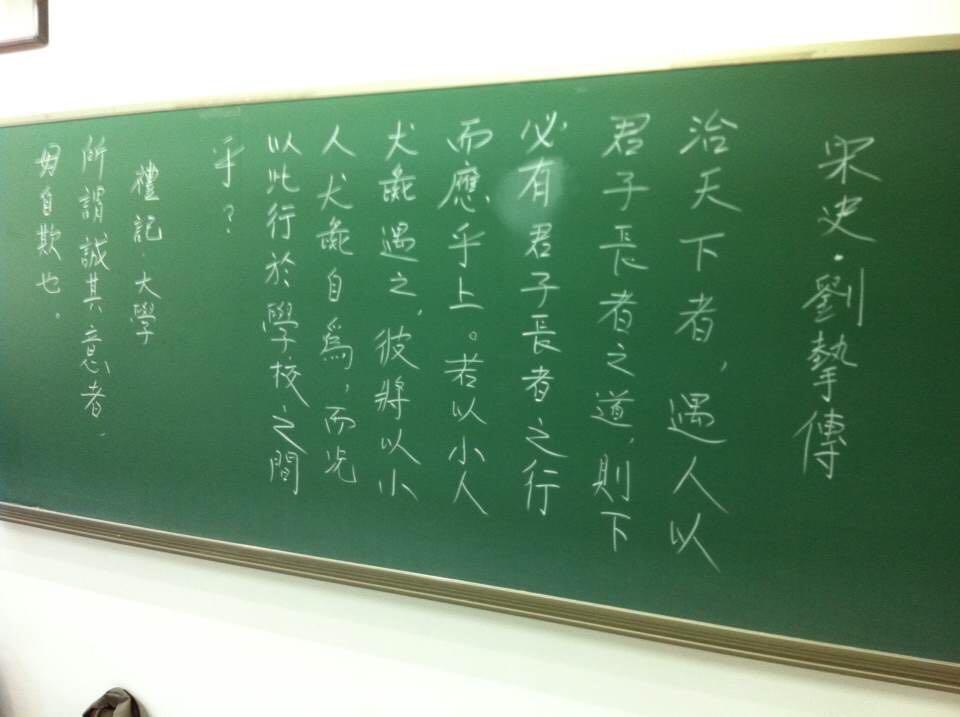 宋史·劉摯傳
治天下者，遇人以
君子長者之道，則下
必有君子長者之行
而應乎上。若以小人
犬彘遇之，彼將以小
人犬彘自爲，而況
以此行於學校之間
乎？
禮記·大學
所謂誠其意者，
毋自欺也。